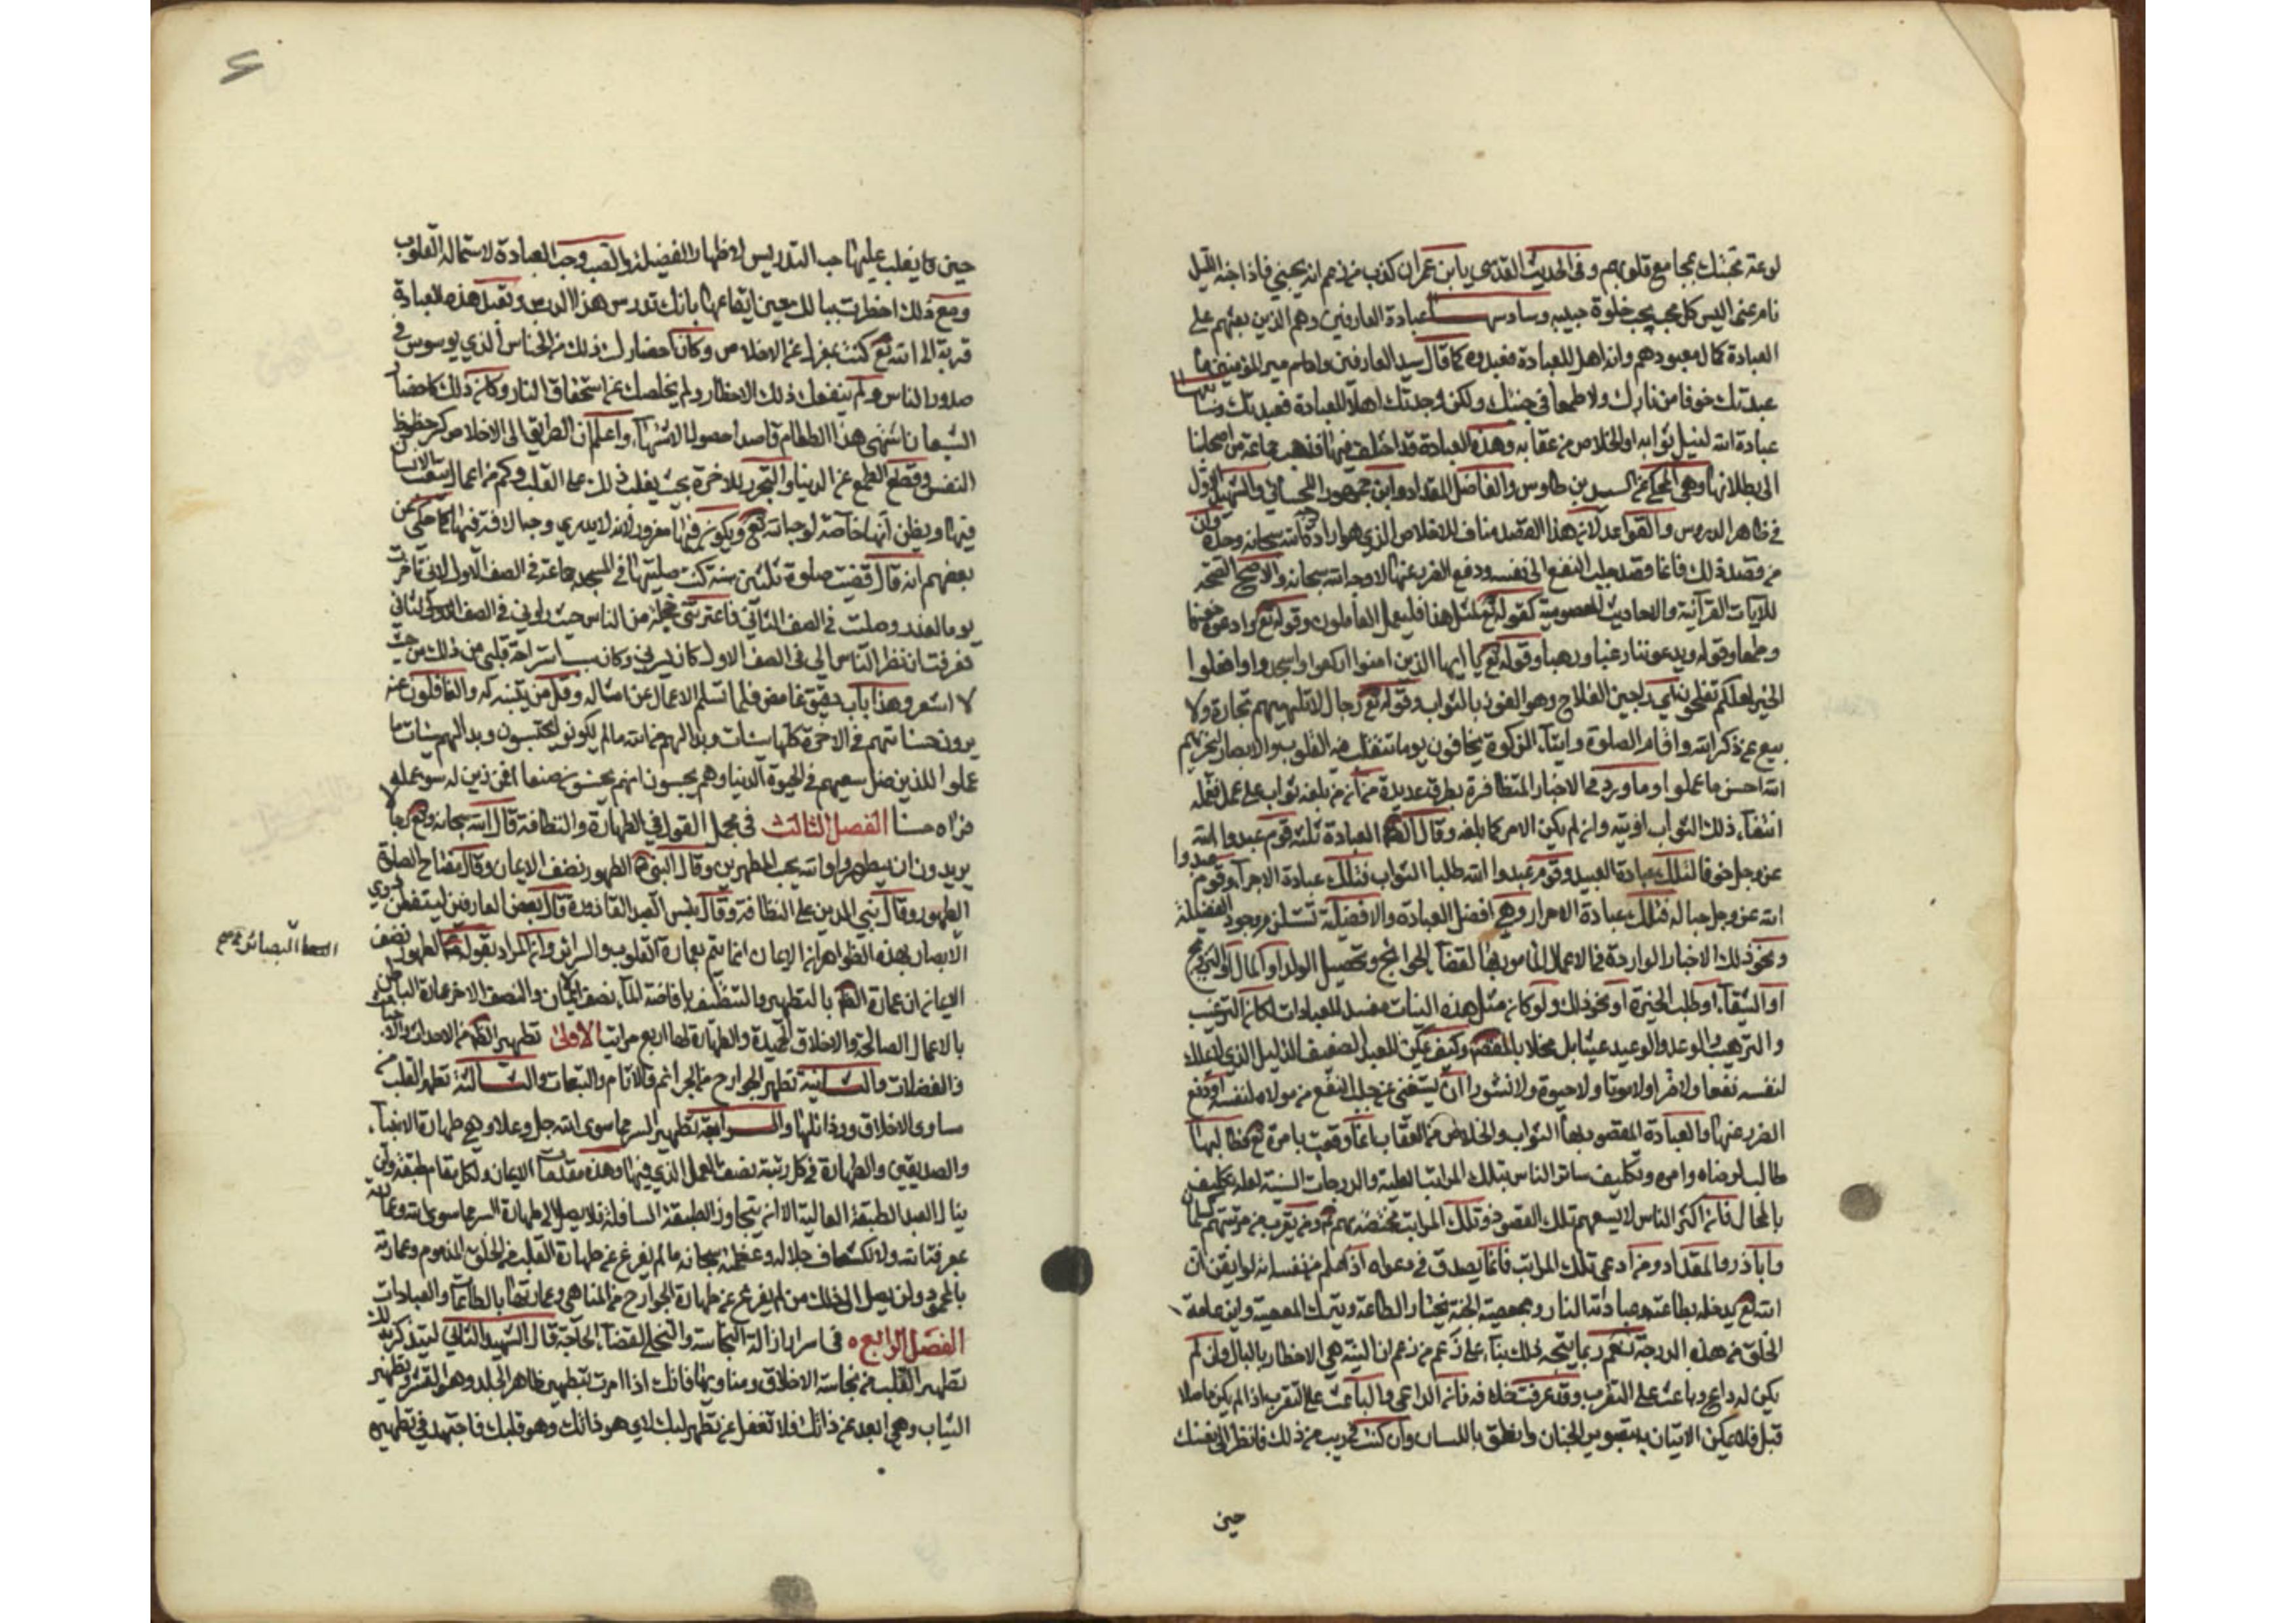 لوعة محبتك بمجامع قلوبهم وفى الحديث القدسي يا ابن عمران كذب من زعم انه يحبني فاذا جنه الليل
نام عني اليس كل محب يحب خلوة حبيبه وسادسها عبادة العارفين وهم الذين بعثهم على
العبادة كمال معبودهم وانه اهل للعبادة فعبدوه كما قال سيد العارفين وامام امير المؤمنين ما
عبدتك خوفا من نارك ولا طمعا فى جنتك ولكن وجدتك اهلا للعبادة فعبدتك وسابعها
عبادة الله لنيل ثوابه او الخلاص من عقابه وهذه العبادة قد اختلف فيها فذهب جماعة من اصحابنا
الى بطلانها وهي المحكي عن السيد بن طاوس والفاضل المقداد وابن جمهور اللحسائي والشهيد الاول
فى ظاهر الدروس والقواعد لانه هذا القصد مناف للاخلاص الذي هو ارادة الله سبحانه وحده وان
من قصد ذلك فانما قصد جلب النفع الى نفسه ودفع الضرر عنها لا وجه الله سبحانه والاصح الصحة
للآيات القرآنية والاحاديث المعصومية كقوله تع لمثل هذا فليعمل العاملون وقوله تع وادعوه خوفا
وطمعا وقوله ويدعوننا رغبا ورهبا وقوله تع يا ايها الذين امنوا اركعوا واسجدوا وافعلوا
الخير لعلكم تفلحون اي راجين الفلاح وهو الفوز بالثواب وقوله تع رجال لا تلهيهم تجارة ولا
بيع عن ذكر الله واقام الصلوة وايتاء الزكوة يخافون يوما تتقلب فيه القلوب والابصار ليجزيهم
الله احسن ما عملوا وما ورد في الاخبار المتظافرة بطرق عديدة من ان من بلغه ثواب على عمل فعمله
ابتغاء ذلك الثواب اوتيه وان لم يكن الامر كما بلغه وقال العبادة ثلثة قوم عبدوا الله
عز وجل خوفا فتلك عبادة العبيد وقوم عبدوا الله طلبا الثواب فتلك عبادة الاجراء وقوم عبدوا
الله عز وجل حبا له فتلك عبادة الاحرار وهي افضل العبادة والافضلية تستلزم وجود الفضيلة
ونحو ذلك الاخبار الواردة فى الاعمال المأمور بها لقضاء الحوائج وتحصيل الولد او المال او التزويج
او الشفاء او طلب الخيرة او نحو ذلك ولو كان مثل هذه النيات مفسد للعبادات لكان الترغيب
والترهيب والوعد والوعيد عبثا بل مخلا بالمقصود وكيف يمكن للعبد الضعيف الذليل الذي لا يملك
لنفسه نفعا ولا ضرا ولا موتا ولا حيوة ولا نشورا ان يستغني عن جلب النفع من مولاه لنفسه او دفع
الضرر عنها والعبادة المقصود بها الثواب والخلاص من العقاب انما وقعت بامره تع
طالب لرضاه وامره وتكليف سائر الناس بتلك المراتب العلية والدرجات السنية لعله تكليف
بالمحال فان اكثر الناس لا يسعهم تلك القصود وتلك المراتب مختصة بهم ومن يقرب من مرتبتهم كسلمان
واباذر والمقداد ومن ادعى تلك المراتب فانما يصدق في دعواه اذا علم من نفسه انه لو ايقن ان
الله تع يدخله بطاعته وعبادته النار وبمعصيته الجنة يختار الطاعة ويترك المعصية واين عامة
الخلق من هذه الدرجة نعم ربما يتجه ذلك بناء على زعم من زعم ان النية هي الاخطار بالبال وان لم
يكن له داع وباعث على التقرب وقد عرفت خلافه فان الداعي والباعث على التقرب اذا لم يكن حاصلا
قبل فلا يمكن الاتيان به بتصوير الجنان وانطق باللسان وان كنت في ريب من ذلك فانظر الى نفسك
حين
حين ما يغلب عليها حب التدريس لاظهار الفضيلة والصيت وحب العبادة لاستمالة القلوب
ومع ذلك اخطرت ببالك حين ايقاعها بانك تدرس هذا الدرس وتفعل هذه العبادة
قربة الى الله تع كنت بمعزل عن الاخلاص وكان احضارك ذلك من الخناس الذي يوسوس فى
صدور الناس ولم ينفعك ذلك الاخطار ولم يخلصك عن استحقاق النار وكان ذلك كاحضار
الشبعان اشتهى هذا الطعام قاصدا حصول الاشتهاء واعلم ان الطريق الى الاخلاص كسر حظوظ
النفس وقطع الطمع عن الدنيا والتجرد للاخرة بحيث يغلب ذلك على القلب وكم من اعمال يتعب الانسان
فيها ويظن انها خالصة لوجه الله تع ويكون فيها مغرور لانه لا يدري وجه الافة فيها كما حكي عن
بعضهم انه قال قضيت صلوة ثلثين سنة كنت صليتها فى المسجد جماعة فى الصف الاول لاني تاخرت
يوما لعذر وصليت فى الصف الثاني فاعترتني خجلة من الناس حيث راوني فى الصف الثاني
فعرفت ان نظر الناس الي فى الصف الاول كان يسرني وكان سبب استراحة قلبي من ذلك من حيث
لا اشعر وهذا باب دقيق غامض قلما تسلم الاعمال عن امثاله وقل من يتنبه له والغافلون عنه
يرون حسناتهم فى الاخرة كلها سيئات وبدا لهم من الله ما لم يكونوا يحتسبون وبدا لهم سيئات ما
عملوا الذين ضل سعيهم فى الحيوة الدنيا وهم يحسبون انهم يحسنون صنعا افمن زين له سوء عمله
فرآه حسنا الفصل الثالث فى مجمل القول في الطهارة والنظافة قال الله سبحانه وتع رجال
يريدون ان يتطهروا والله يحب المطهرين وقال النبي الطهور نصف الايمان وقال مفتاح الصلوة
الطهور وقال بني الدين على النظافة وقال بئس العبد القاذورة قال بعض العارفين ليتفطن ذوي
الابصار بهذه الظواهر ان الايمان انما يتم بعمارة القلوب والسرائر وان المراد بقوله الطهور نصف
الايمان ان عمارة الظاهر بالتطهير والتنظيف بافاضة الماء نصف الايمان والنصف الاخر عمارة الباطن
بالاعمال الصالحة والاخلاق الحميدة والطهارة لها اربع مراتب الأولى تطهير الظاهر من الاحداث والاخباث
والفضلات والثانية تطهير الجوارح من الجرائم والاثام والتبعات والثالثة تطهير القلب من
مساوى الاخلاق ورذائلها والرابعة تطهير السر مما سوى الله جل وعلا وهي طهارة الانبياء
والصديقين والطهارة فى كل رتبة نصف العمل الذي فيها وهذه مقدمات الايمان ولكل مقام طبقة ولن
ينال العبد الطبقة العالية الا ان يتجاوز الطبقة السافلة فلا يصل الى طهارة السر مما سوى الله وعمارته
بمعرفة الله ولانكشاف جلاله وعظمته سبحانه ما لم يفرغ عن طهارة القلب من الخلق المذموم وعمارته
بالمحمود ولن يصل الى ذلك من لم يفرغ عن طهارة الجوارح من المناهي وعمارتها بالطاعات والعبادات
الفصل الرابع فى اسرار ازالة النجاسة والتخلي لقضاء الحاجة قال الشهيد الثاني ليتذكر بذلك
تطهير القلب من نجاسة الاخلاق ومساويها فانك اذا امرت بتطهير ظاهر الجلد وهو القشر وتطهير
الثياب وهي ابعد عن ذاتك فلا تغفل عن تطهير لبك الذي هو ذاتك وهو قلبك فاجتهد في تطهيره